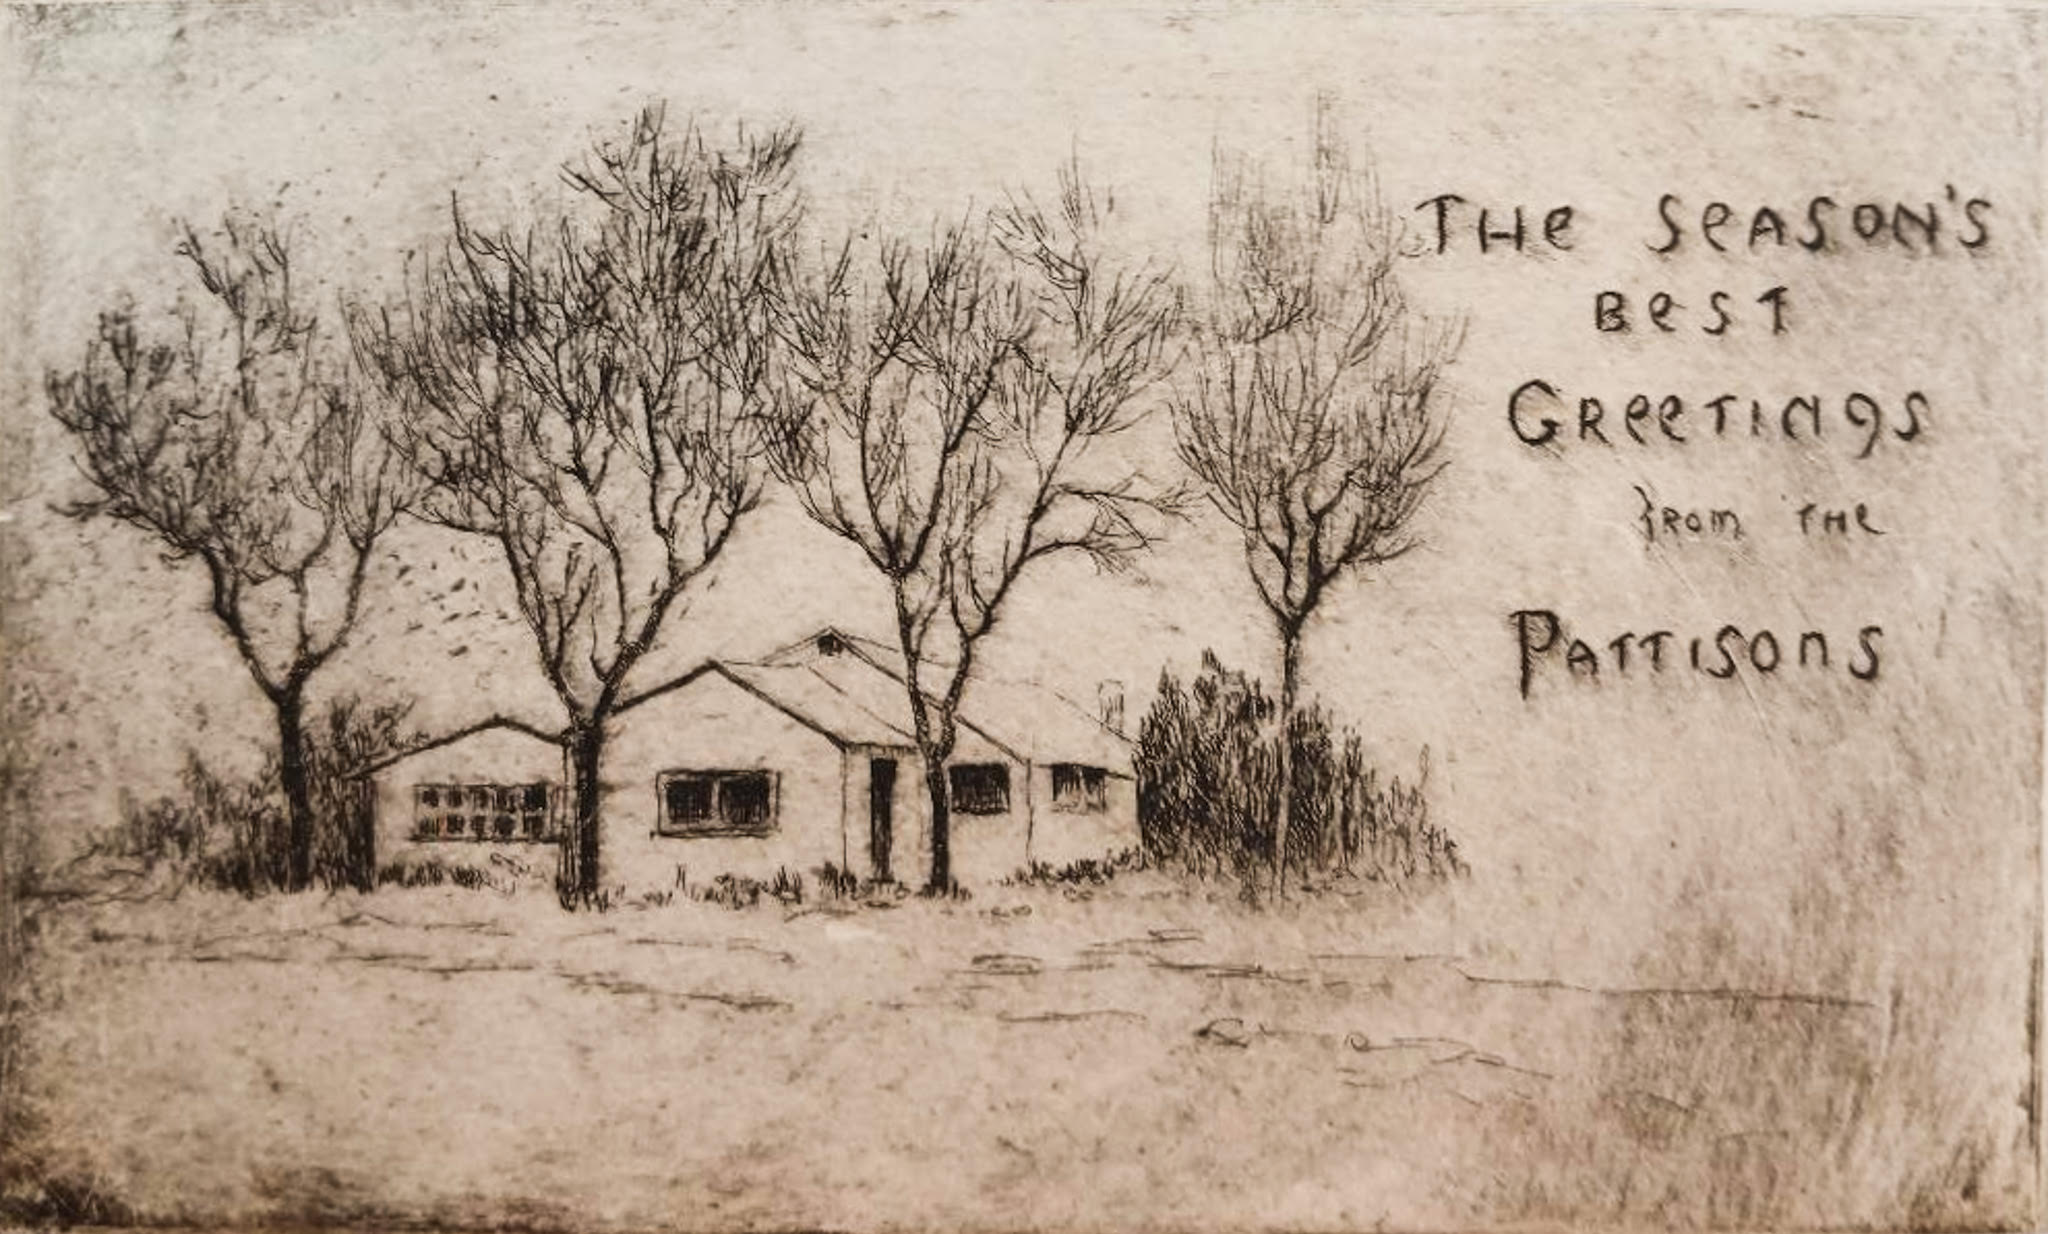 THe SeASON'S
BeST
GReeTINgS
fROm THe
PATTISOnS